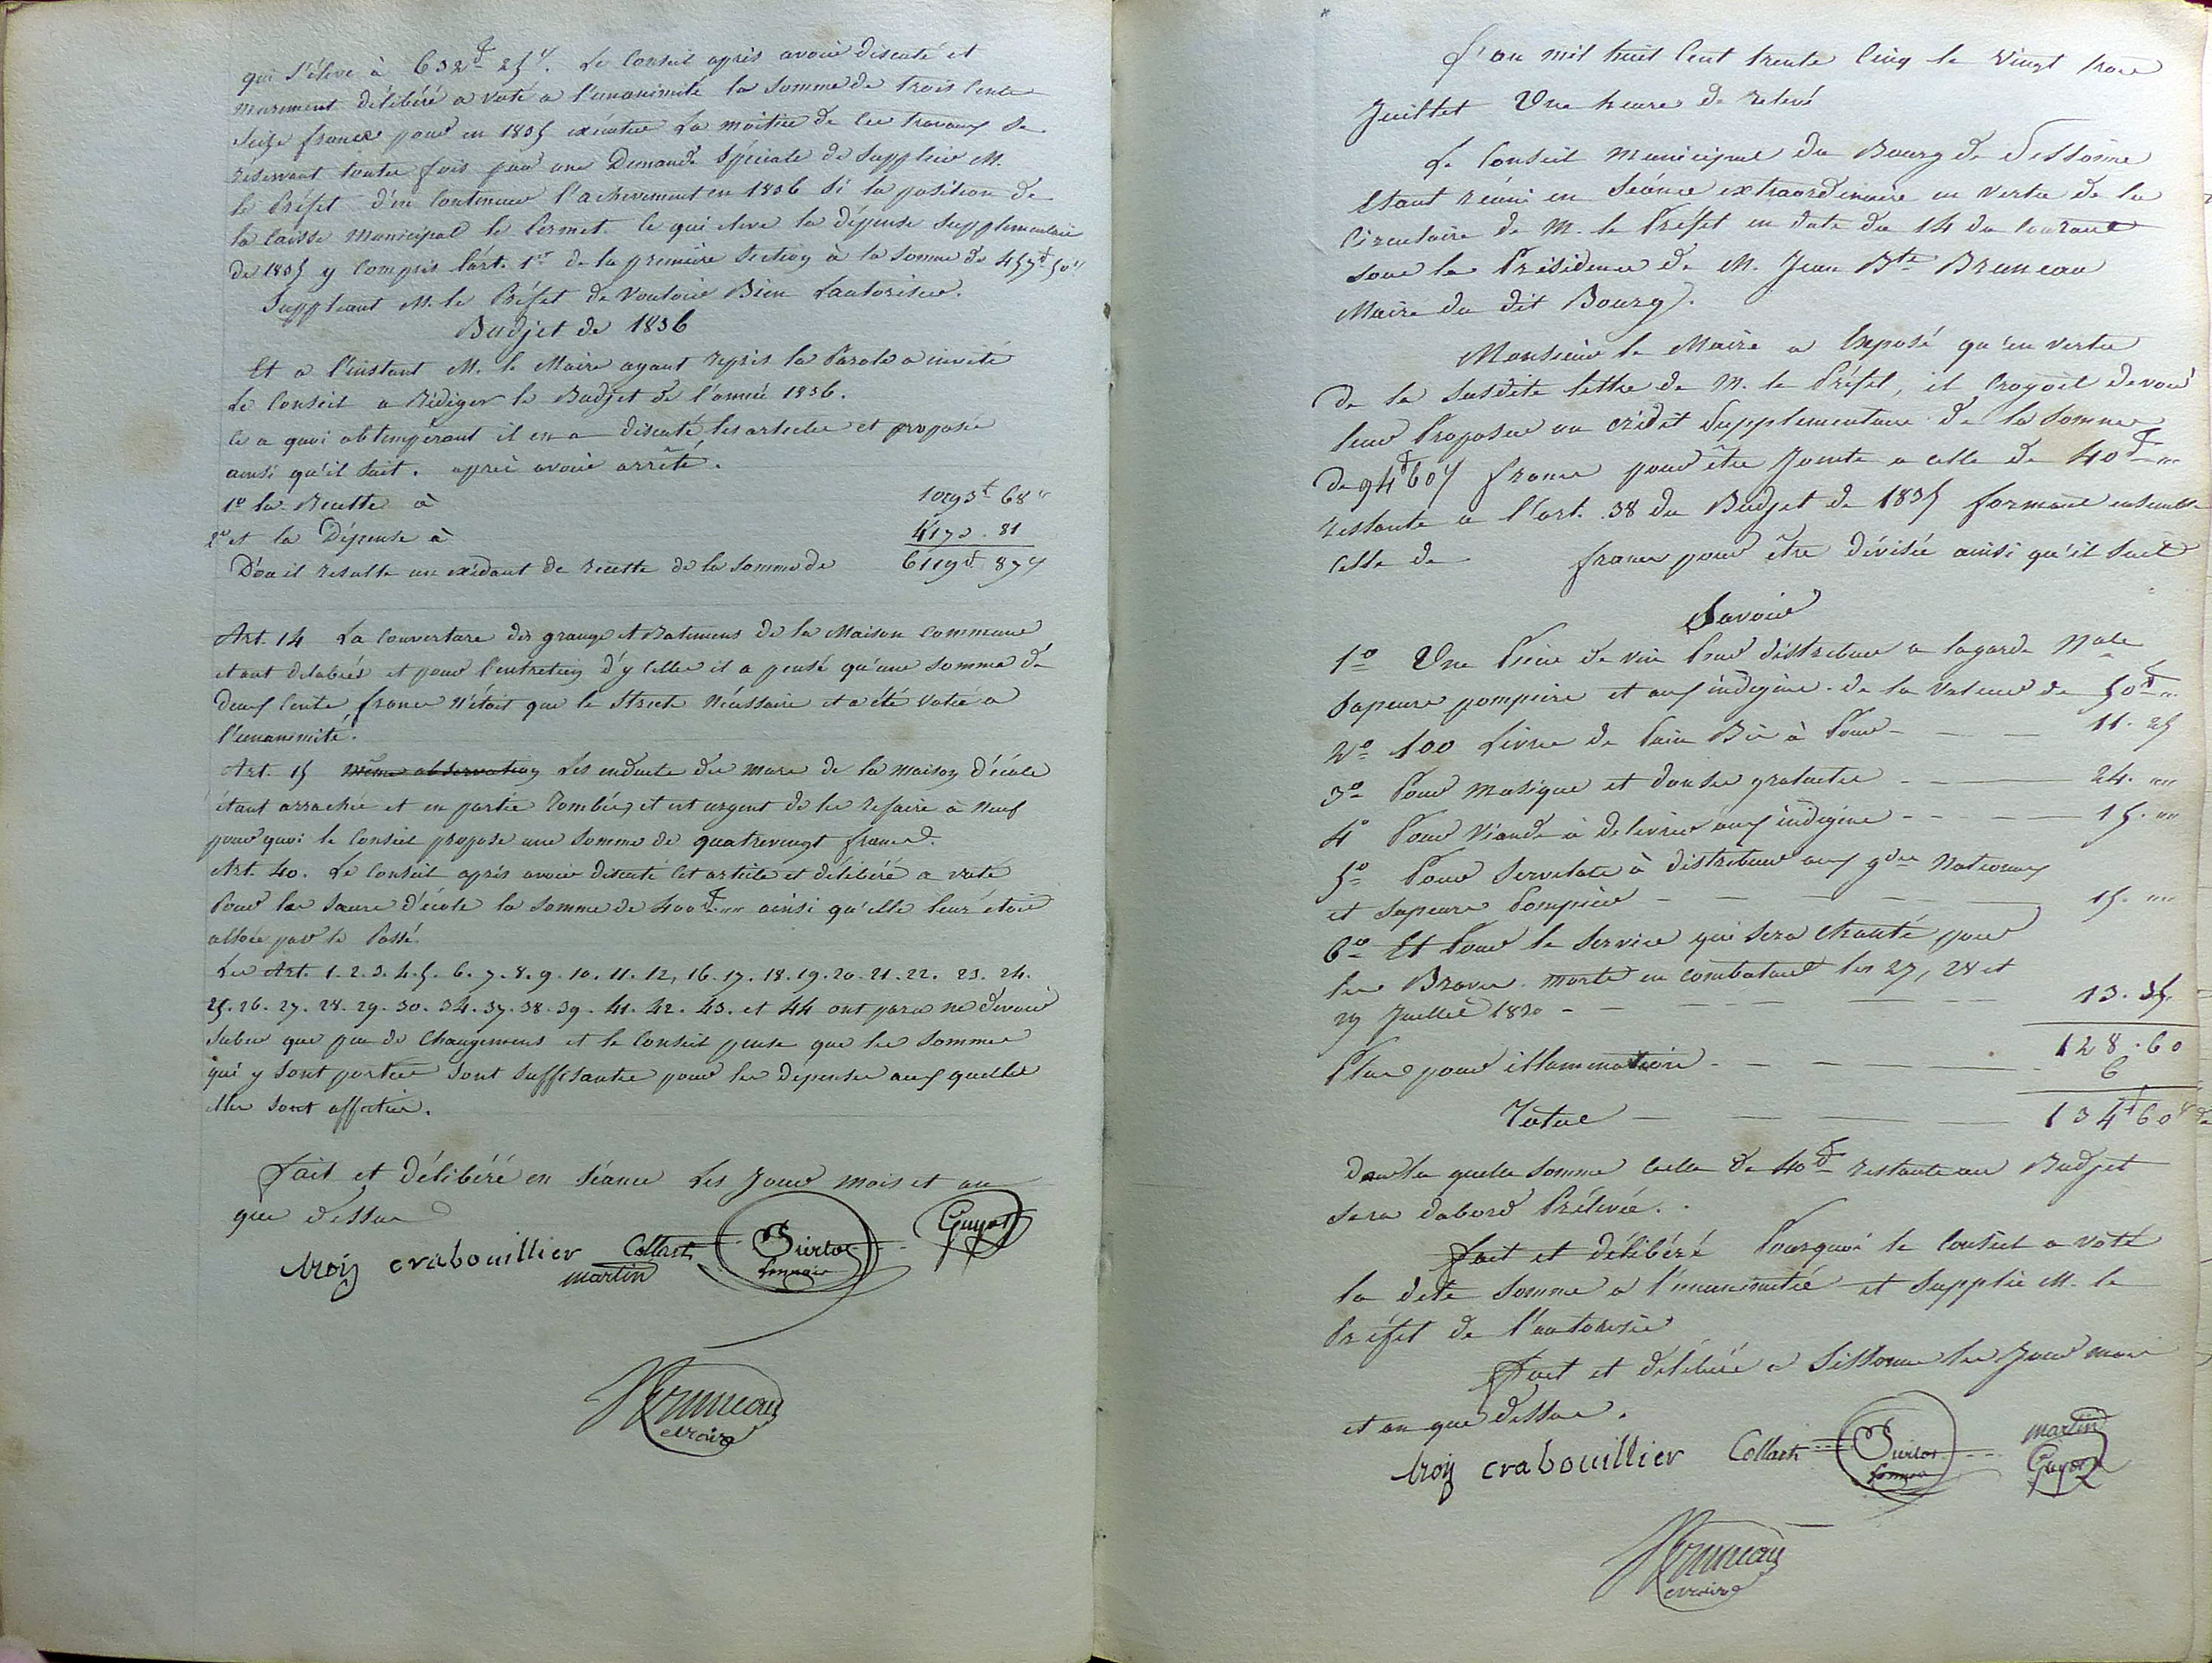 qui s'élève à 632f 25c. Le Conseil après avoir discuté et
murement délibéré a voté a l'unanimité la somme de trois cents
seize francs pour en 1835 exécuter la moitiée de ces travaux se
réservant toutes fois par une Demande spéciale de supplier M.
le Préfet d'en continuer l'achevement en 1836 si la position de
la Caisse Municipal le Permet. Ce qui eleve la dépense supplementaire
de 1835 y compris l'art. 1er de la première section à la somme de 457f 50c
Suppliant M. le Préfet de vouloir Bien L'autoriser.
Budjet de 1836
Et a l'instant M. le Maire ayant repris la Parole a invité
le Conseil a Rédiger le Budjet de l'année 1836.
Ce a quoi obtempérant il en a discuté les articles et proposé
ainsi qu'il suit. après avoir arrêté.
1º la Recette à 10293f 68c
2º et la Dépense à 4173. 81
D'où il resulte un exédant de recette de la somme de 6119f 87c
Art. 14 La couverture des grange et Batimens de la Maison commune
etant delabrés et pour l'entretien d'y celles il a pensé qu'une somme de
deux cents francs n'était que le strict Nécessaire et a été votée a
l'unanimité.
Art. 15 même observation Les enduits des murs de la maison d'école
étant arrachés et en partie Tombés, et est urgent de les refaire à Neuf
pour quoi le Conseil propose une somme de quatrevingt francs.
Art. 40. Le Conseil après avoir discuté cet article et délibéré a voté
Pour les Sœurs d'école la somme de 400f.,, ainsi qu'elle leur étoit
allouée par le Passé.
Les Art. 1. 2. 3. 4. 5. 6. 7. 8. 9. 10. 11. 12, 16. 17. 18. 19. 20. 21. 22. 23. 24.
25. 26. 27. 28. 29. 30. 34. 37. 38. 39. 41. 42. 43. et 44 ont paru ne devoir
subir que peu de Changemens et le Conseil pense que les sommes
qui y sont portées sont suffisantes pour les depenses aux quelles
elles sont affectées.
Fait et délibéré en séance Les Jour mois et an
que dessus
troiy crabouillier Collart
martin Guyot
Bruneau
maire
L'an mil huit Cent trente Cinq le vingt trois
Juillet Une heure de relevé
Le Conseil Municipal du Bourg de Sissonne
Etant réuni en séance extraordinaire en vertu de la
Circulaire de M. le Préfet en date du 14 du Courant
sous la Présidence de M. Jean Bte Bruneau
Maire du dit Bourg.
Monsieur le Maire a Exposé qu'en vertu
de la susdite lettre de M. le Préfet, il Croyoit devoir
leur Proposer un crédit supplementaire de la somme
de 94f 60c francs pour être Jointe a celle de 40f,,
restante a l'art. 38 du Budjet de 1835 formant ensemble
celle de francs pour être divisée ainsi qu'il suit
Savoir
1º Une Pièce de vin Pour distribuer a la garde Nale
sapeurs pompiers et aux indigens. de la valeur de 50f,,
2º 100 Livres de Pain Bis à Pour 11. 25
3º Pour musique et danses gratuites 24. ,,
4º Pour Viande à delivrer aux indigens 15. ,,
5º Pour Servelats à distribuer aux gdes Nationaux
et sapeurs Pompiers 15. ,,
6º Et Pour le service qui sera chanté pour
les Braves morts en combatant les 27, 28 et
29 Juillet 1830 13. 35
128. 60
Plus pour illumination 6
Total 134f 60c
dans la quelle somme celle de 40f restante au Budjet
sera dabord Prélevée.
Fait et délibéré Pourquoi le Conseil a voté
la dite somme a l'unanimitée et supplie M. le
Préfet de l'autoriser
Fait et délibéré a Sissonne les Jour mois
et an que dessus.
troiy crabouillier Collart martin
Guyot
Bruneau
maire